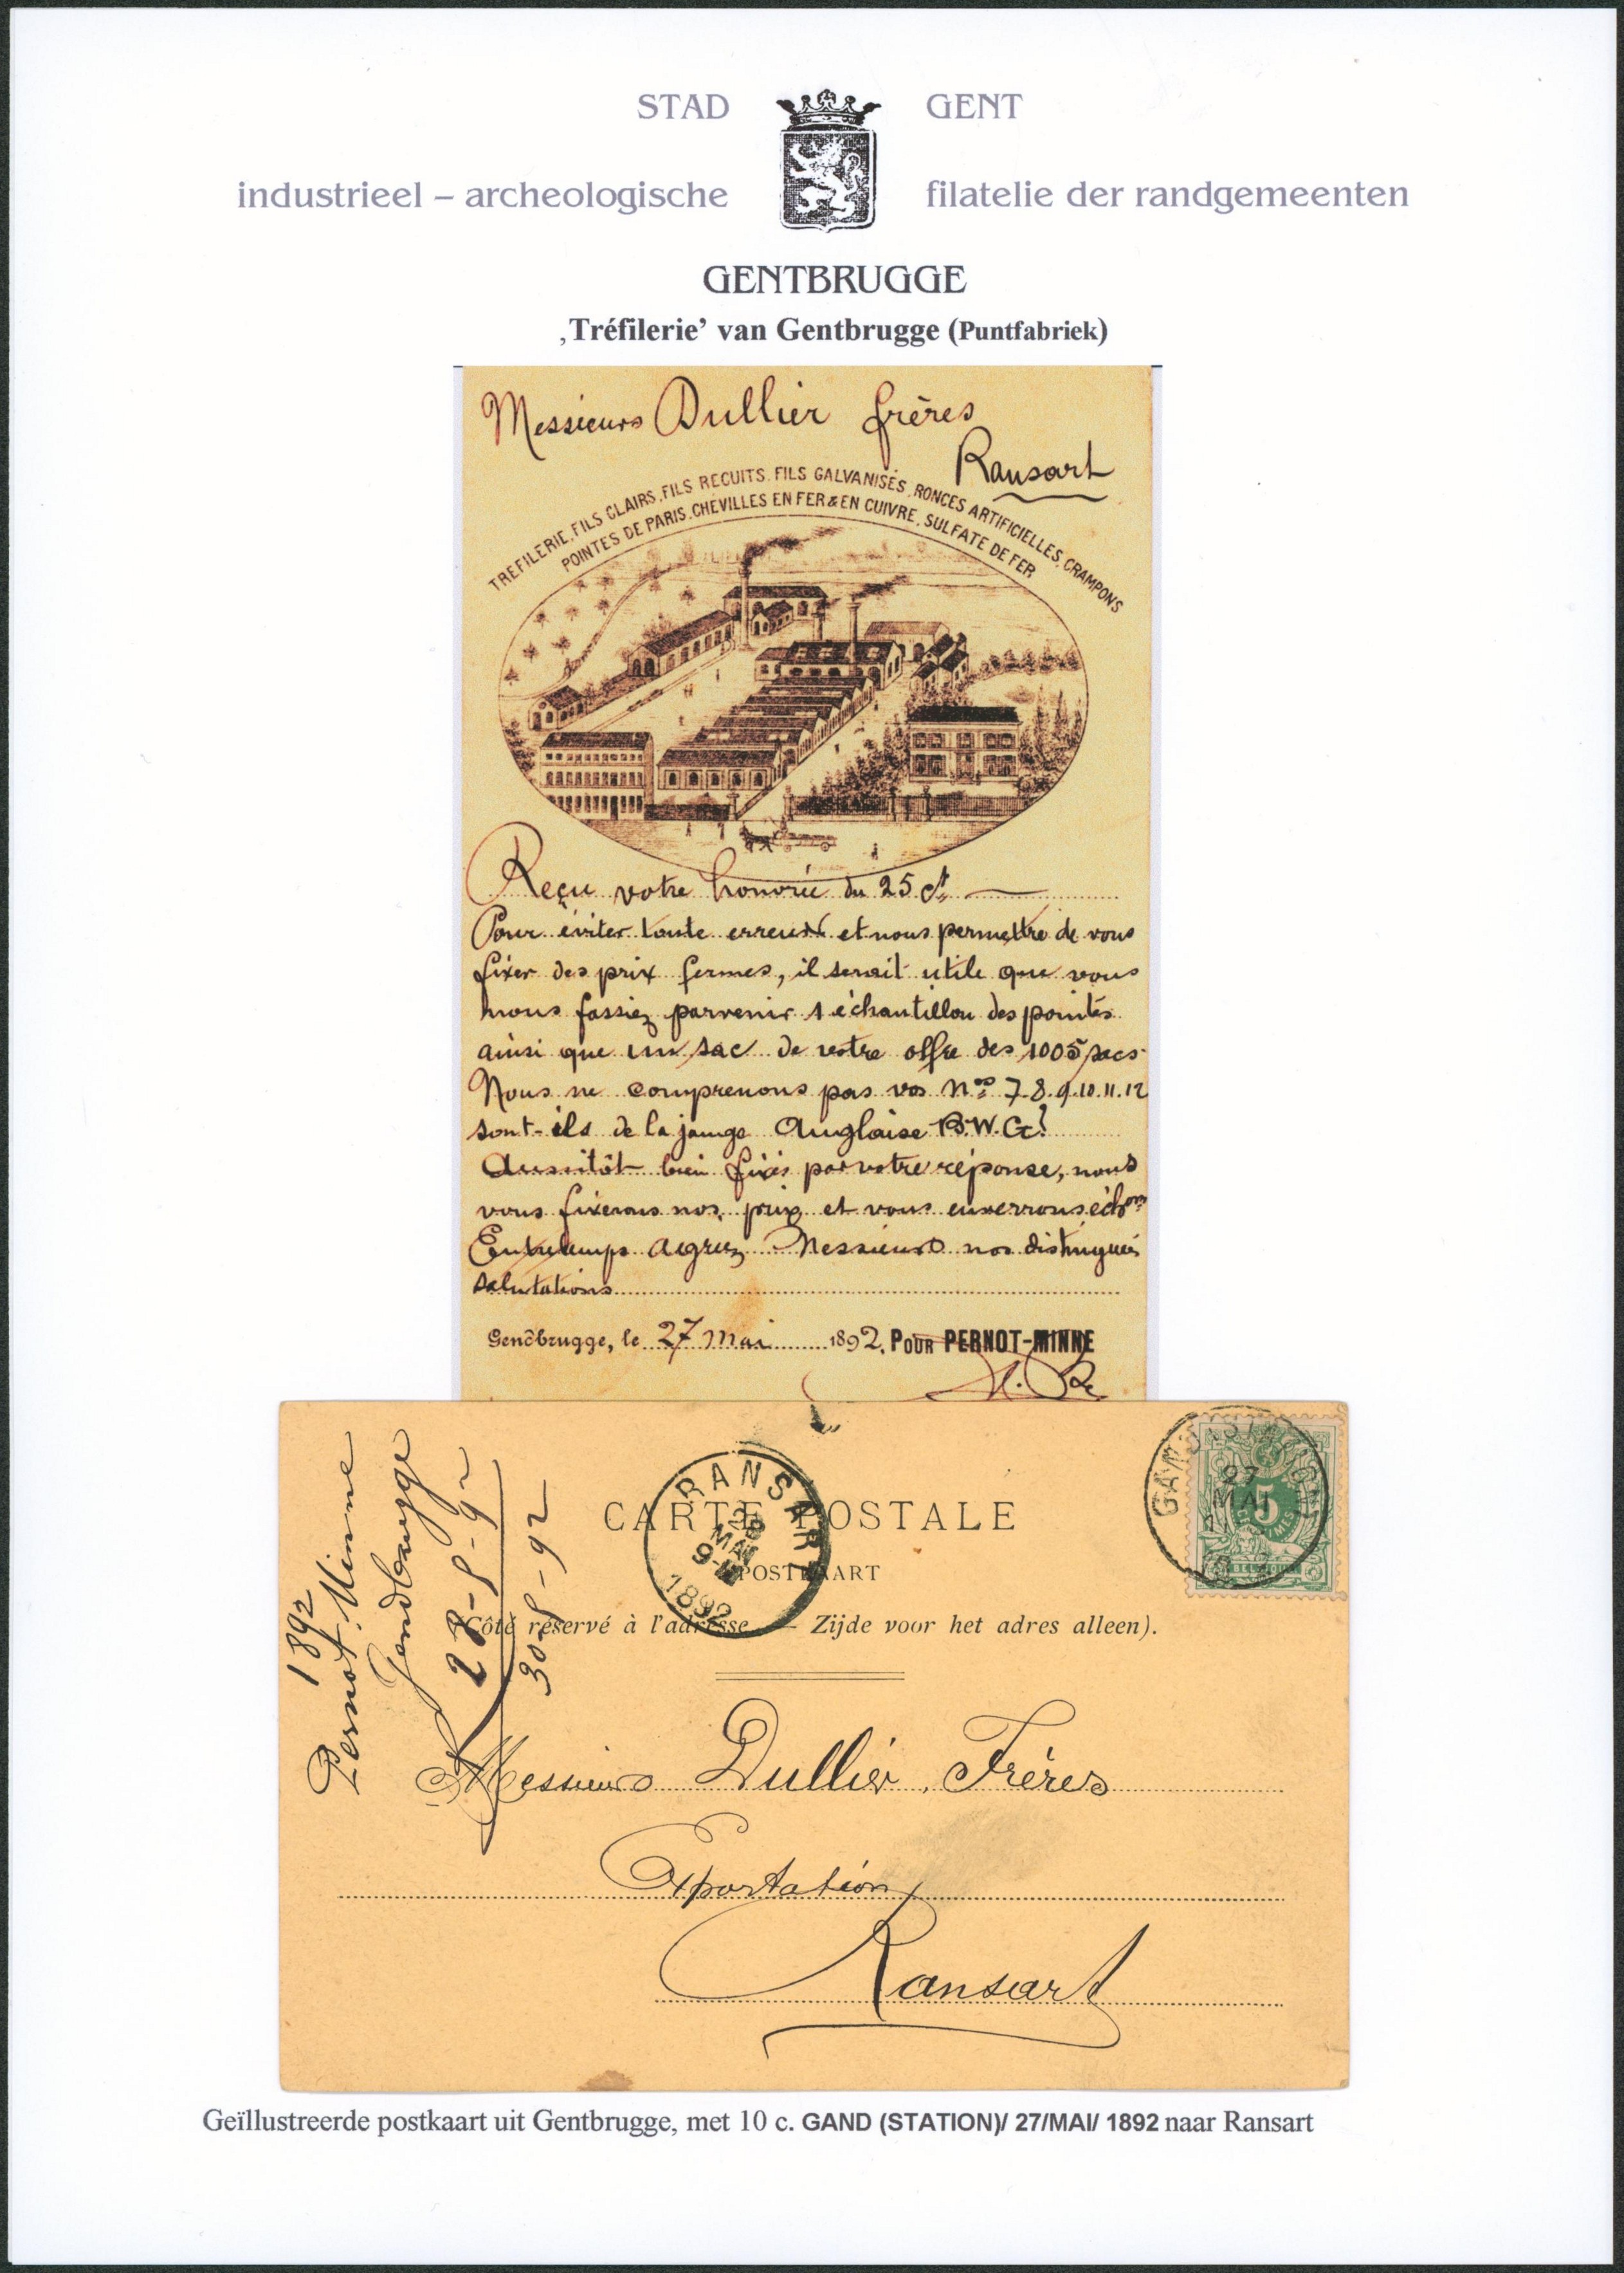 STAD GENT
industrieel – archeologische filatelie der randgemeenten
GENTBRUGGE
‚Tréfilerie’ van Gentbrugge (Puntfabriek)
Messieurs Dullier frères
Ransart
TREFILERIE, FILS CLAIRS, FILS RECUITS, FILS GALVANISÉS, RONCES ARTIFICIELLES, CRAMPONS
POINTES DE PARIS, CHEVILLES EN FER & EN CUIVRE, SULFATE DE FER
Reçu votre honorée du 25 ct
Pour éviter toute erreur et nous permettre de vous
fixer des prix fermes, il serait utile que vous
nous fassiez parvenir 1 échantillon des pointes
ainsi que un sac de votre offre des 1005 sacs
Nous ne comprenons pas vos Nos 7.8.9.10.11.12
sont-ils de la jauge Anglaise B.W.G?
Aussitôt bien fixés par votre réponse, nous
vous fixerons nos prix et vous enverrons échons
Entretemps agréez Messieurs nos distingués
salutations
Gendbrugge, le 27 Mai 1892. POUR PERNOT-MINNE
1892
Pernot-Minne
Gendbrugge
28-5-92
30-5-92
RANSART
28
MAI
1892
CARTE POSTALE
POSTKAART
(Côté réservé à l'adresse. — Zijde voor het adres alleen).
27
MAI
5
Messieurs Dullier Frères
Exportation
Ransart
Geïllustreerde postkaart uit Gentbrugge, met 10 c. GAND (STATION)/ 27/MAI/ 1892 naar Ransart